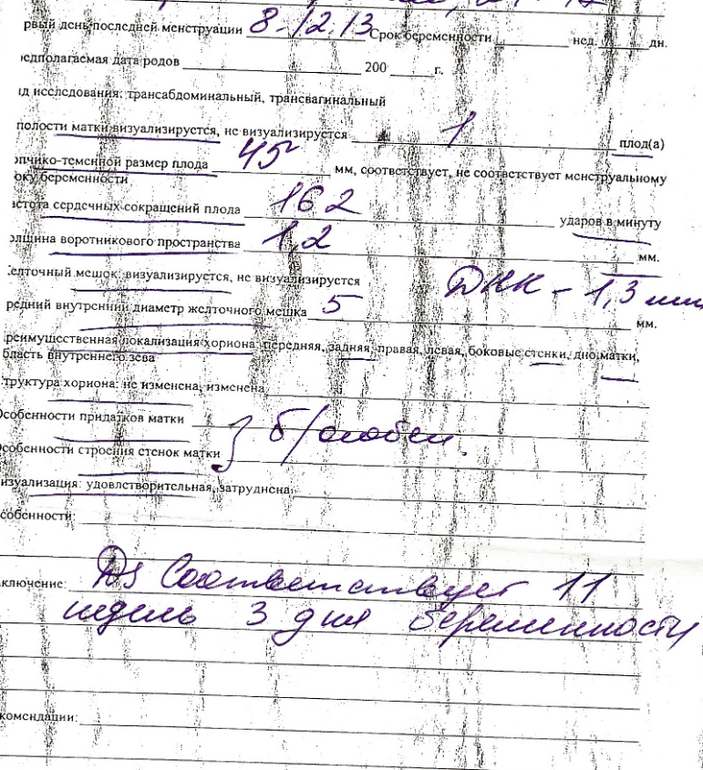 рвый день последней менструации 8-12.13 Срок беременности ______ нед. ____ дн.
едполагаемая дата родов ______ 200 ____ г.
ид исследования: трансабдоминальный, трансвагинальный
полости матки визуализируется, не визуализируется 1 плод(а)
пчико-теменной размер плода 45 мм, соответствует, не соответствует менструальному
оку беременности
стота сердечных сокращений плода 162 ударов в минуту
олщина воротникового пространства 1,2 мм.
елточный мешок: визуализируется, не визуализируется ДНК - 1,3 мм
редний внутренний диаметр желточного мешка 5 мм.
реимущественная локализация хориона: передняя, задняя, правая, левая, боковые стенки, дно матки,
бласть внутреннего зева
труктура хориона: не изменена, изменена
Особенности придатков матки
Особенности строения стенок матки } б/особен.
изуализация: удовлетворительная, затруднена
собенности:
ключение: Ds Соответствует 11
недель 3 дня беременности
комендации: